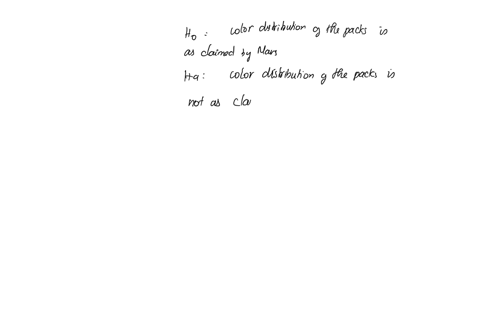 H₀: color distribution of the packs is
as claimed by Mars
Ha: color distribution of the packs is
not as cla